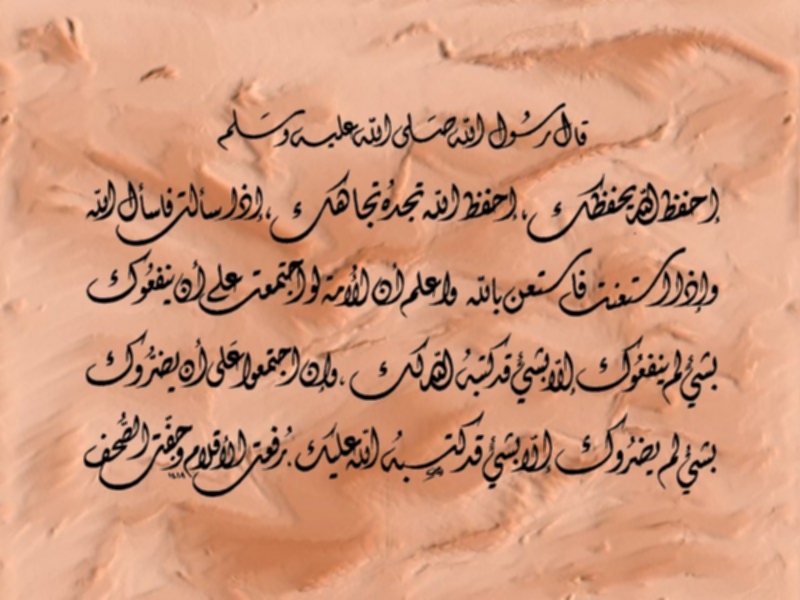 قال رسول الله صلى الله عليه وسلم
إحفظ الله يحفظك ، إحفظ الله تجده تجاهك ، إذا سألت فاسأل الله
وإذا استعنت فاستعن بالله واعلم أن الأمة لو اجتمعت على أن ينفعوك
بشئ لم ينفعوك إلا بشئ قد كتبه الله لك ، وإن اجتمعوا على أن يضروك
بشئ لم يضروك إلا بشئ قد كتبه الله عليك . رفعت الأقلام وجفت الصحف